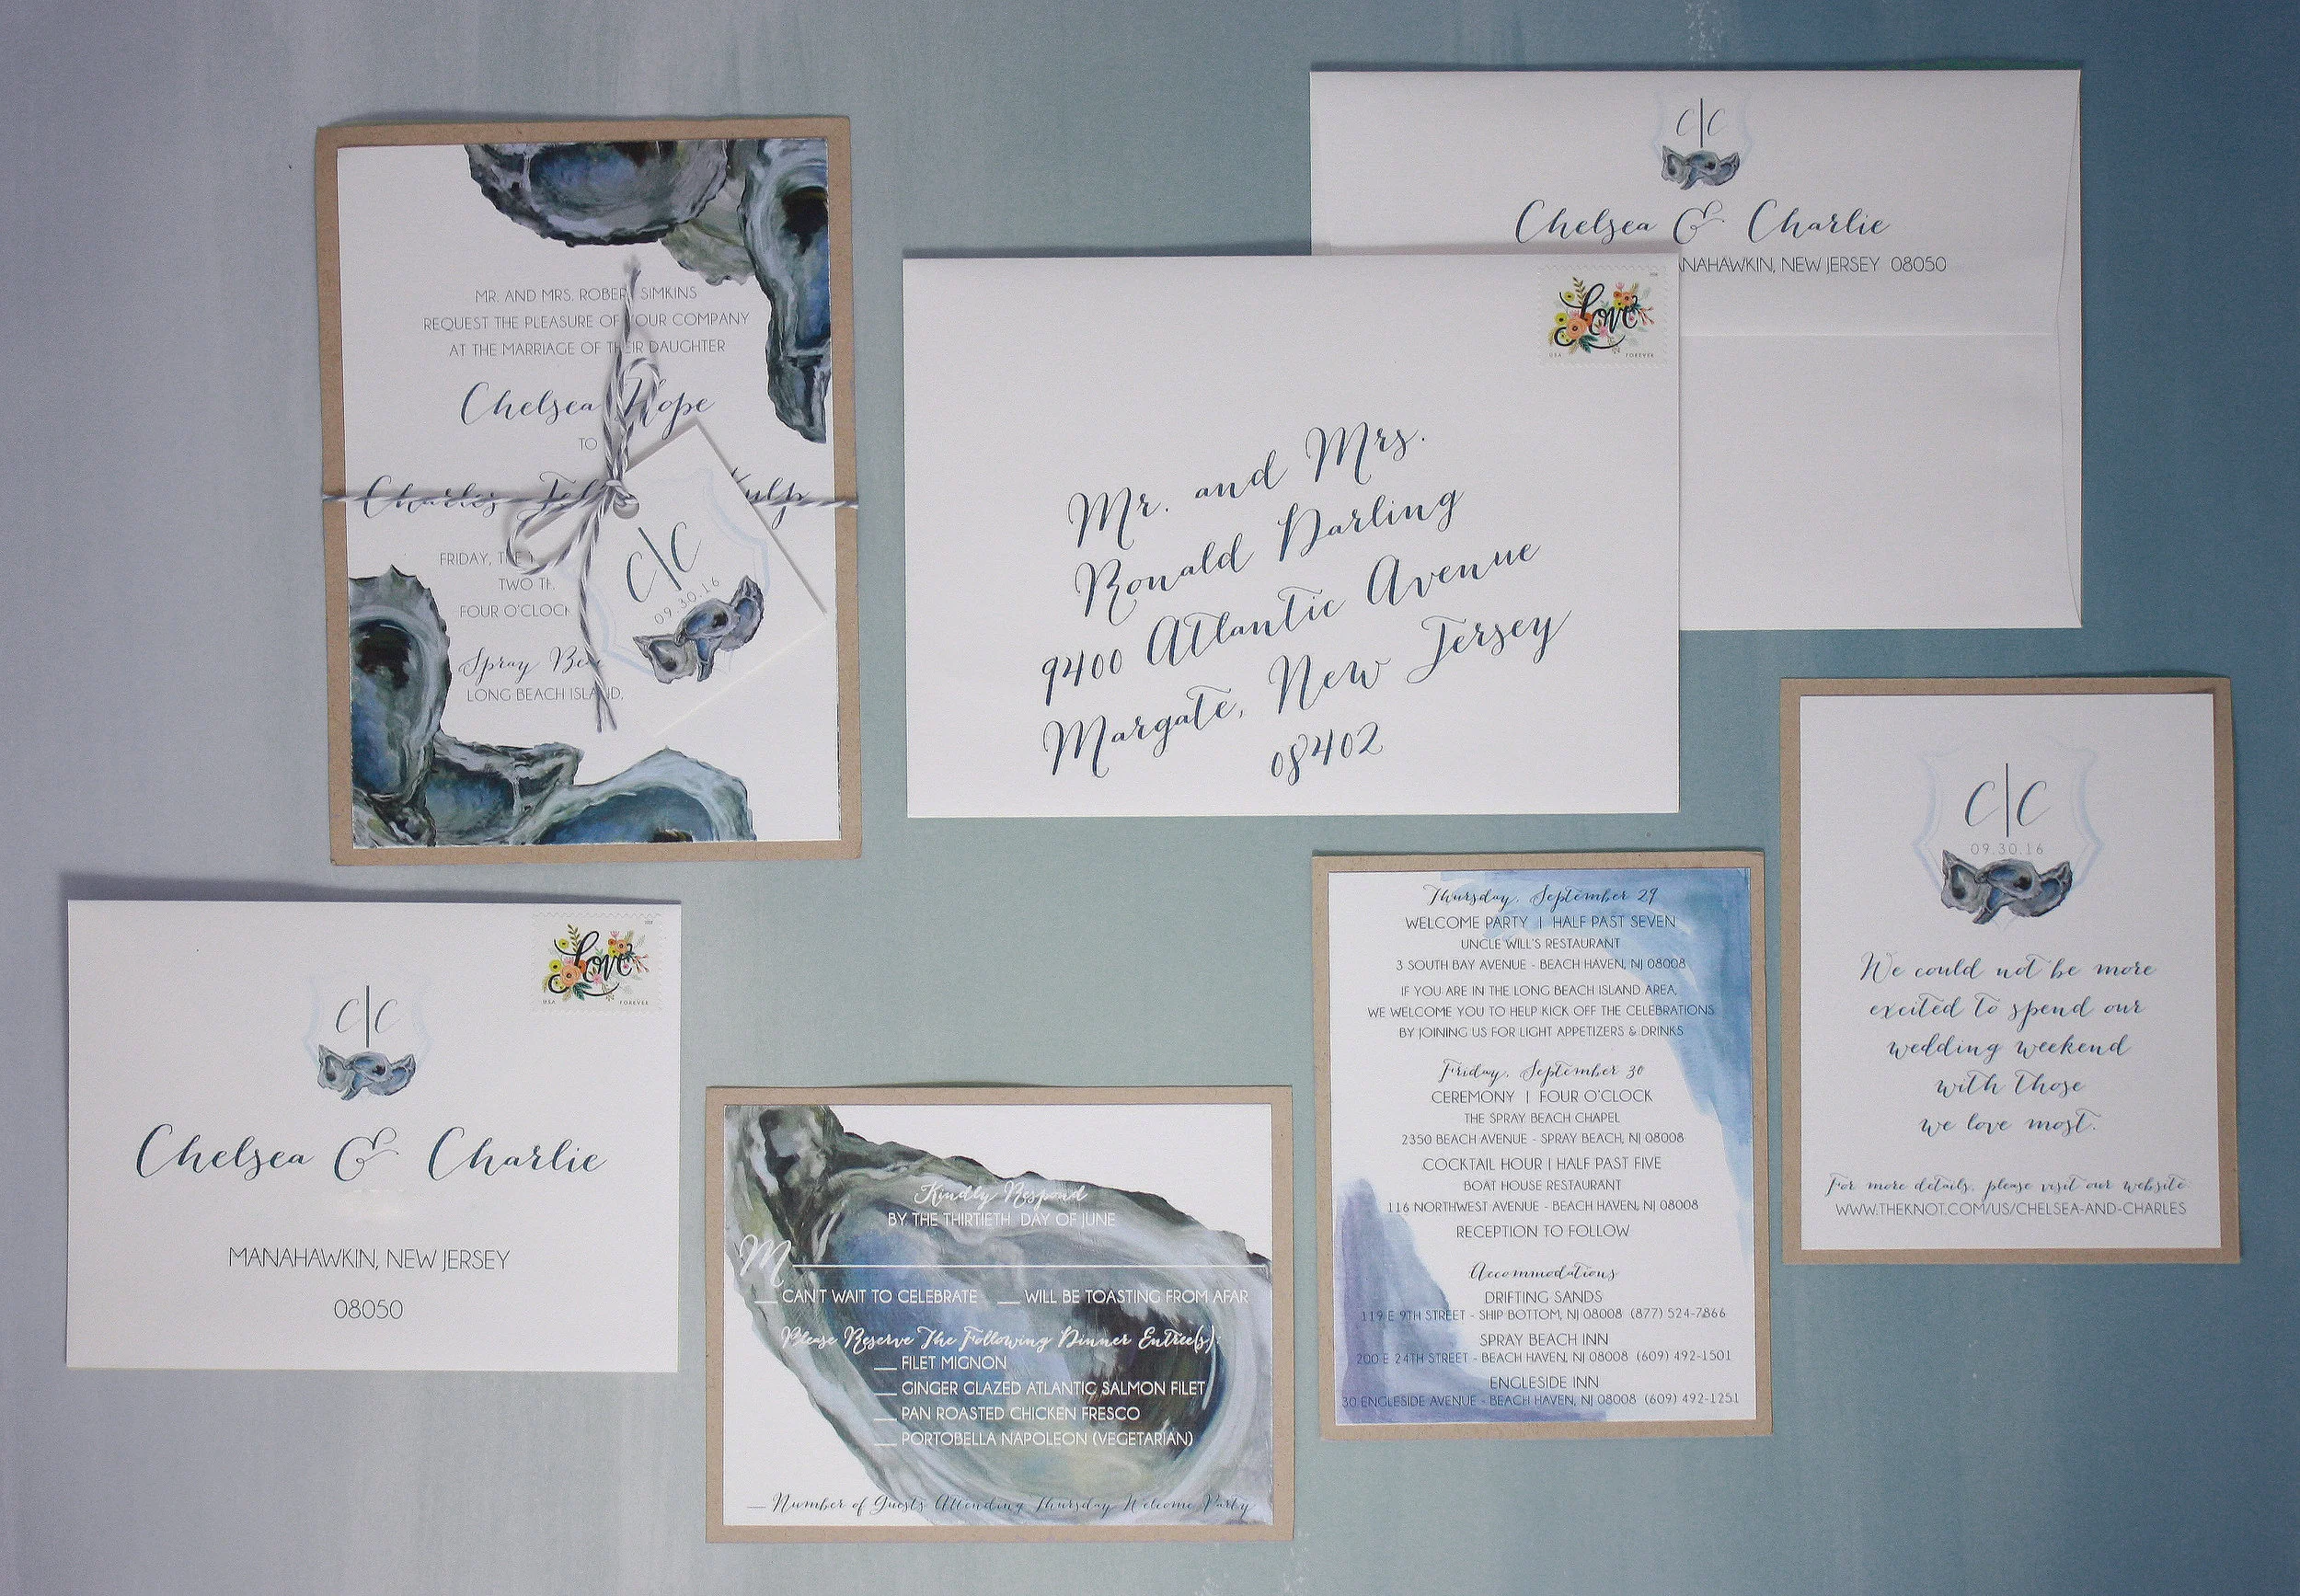 MR. AND MRS. SIMKINS
REQUEST THE PLEASURE OF YOUR COMPANY
AT THE MARRIAGE OF THEIR DAUGHTER
Chelsea Hope
TO
Charles
FRIDAY, THE
TWO
FOUR O'CLOCK
Spray
LONG BEACH ISLAND,
C|C
09.30.16
C|C
Chelsea & Charlie
NEW JERSEY 08050
Love
USA FOREVER
Mr. and Mrs.
Ronald Darling
9400 Atlantic Avenue
Margate, New Jersey
08402
C|C
09.30.16
We could not be more
excited to spend our
wedding weekend
with those
we love most.
For more details, please visit our website
WWW.THEKNOT.COM/US/CHELSEA-AND-CHARLES
Love
USA FOREVER
C|C
Chelsea & Charlie
MANAHAWKIN, NEW JERSEY
08050
Kindly Respond
BY THE THIRTIETH DAY OF JUNE
M
__ CAN'T WAIT TO CELEBRATE __ WILL BE TOASTING FROM AFAR
Please Reserve The Following Dinner Entree(s):
__ FILET MIGNON
__ GINGER GLAZED ATLANTIC SALMON FILET
__ PAN ROASTED CHICKEN FRESCO
__ PORTOBELLA NAPOLEON (VEGETARIAN)
__ Number of Guests Attending Thursday Welcome Party
Thursday, September 29
WELCOME PARTY | HALF PAST SEVEN
UNCLE WILL'S RESTAURANT
3 SOUTH BAY AVENUE - BEACH HAVEN, NJ 08008
IF YOU ARE IN THE LONG BEACH ISLAND AREA,
WE WELCOME YOU TO HELP KICK OFF THE CELEBRATIONS
BY JOINING US FOR LIGHT APPETIZERS & DRINKS
Friday, September 30
CEREMONY | FOUR O'CLOCK
THE SPRAY BEACH CHAPEL
2350 BEACH AVENUE - SPRAY BEACH, NJ 08008
COCKTAIL HOUR | HALF PAST FIVE
BOAT HOUSE RESTAURANT
116 NORTHWEST AVENUE - BEACH HAVEN, NJ 08008
RECEPTION TO FOLLOW
Accommodations
DRIFTING SANDS
119 E 9TH STREET - SHIP BOTTOM, NJ 08008 (877) 524-7866
SPRAY BEACH INN
200 E 24TH STREET - BEACH HAVEN, NJ 08008 (609) 492-1501
ENGLESIDE INN
30 ENGLESIDE AVENUE - BEACH HAVEN, NJ 08008 (609) 492-1251